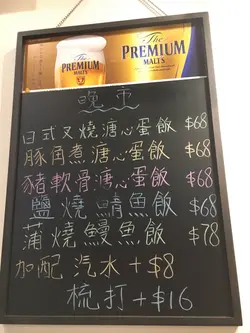 The
PREMIUM
MALT'S
The
PREMIUM
MALT'S
晚市
日式叉燒溏心蛋飯 $68
豚角煮溏心蛋飯 $68
豬軟骨溏心蛋飯 $68
鹽燒鯖魚飯 $68
蒲燒鰻魚飯 $78
加配 汽水+$8
梳打+$16